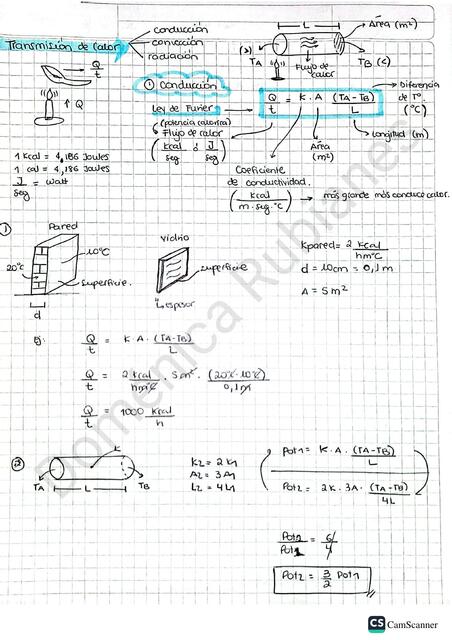 Transmisión de Calor
conducción
convicción
radiación
L
Área (m²)
(>) TA
TB (<)
Flujo de calor
Q/t
↑ Q
① Conducción
Ley de Furier
(potencia calorica)
Flujo de calor
(Kcal/seg ó J/seg)
Q/t = K · A · (TA-TB)/L
Diferencia de Tº (°C)
Longitud (m)
Área (m²)
Coeficiente de conductividad.
(Kcal/m·seg·°C) → más grande más conduce calor.
1 Kcal = 4,186 Joules
1 cal = 4,186 Joules
J/seg = watt
①
Pared
20°C
10°C
Superficie.
d
Vidrio
superficie
espesor
Kpared = 2 Kcal/hm°C
d = 10cm = 0,1m
A = 5m²
Q/t = K·A·(TA-TB)/L
Q/t = 2 Kcal/hm°C · 5m² · (20°C-10°C)/0,1m
Q/t = 1000 Kcal/h
②
K
TA
L
TB
K2 = 2K1
A2 = 3A1
L2 = 4L1
Pot1 = K·A·(TA-TB)/L
Pot2 = 2K·3A·(TA-TB)/4L
Pot2/Pot1 = 6/4
Pot2 = 3/2 Pot1
Domenica Rubianes
CS CamScanner